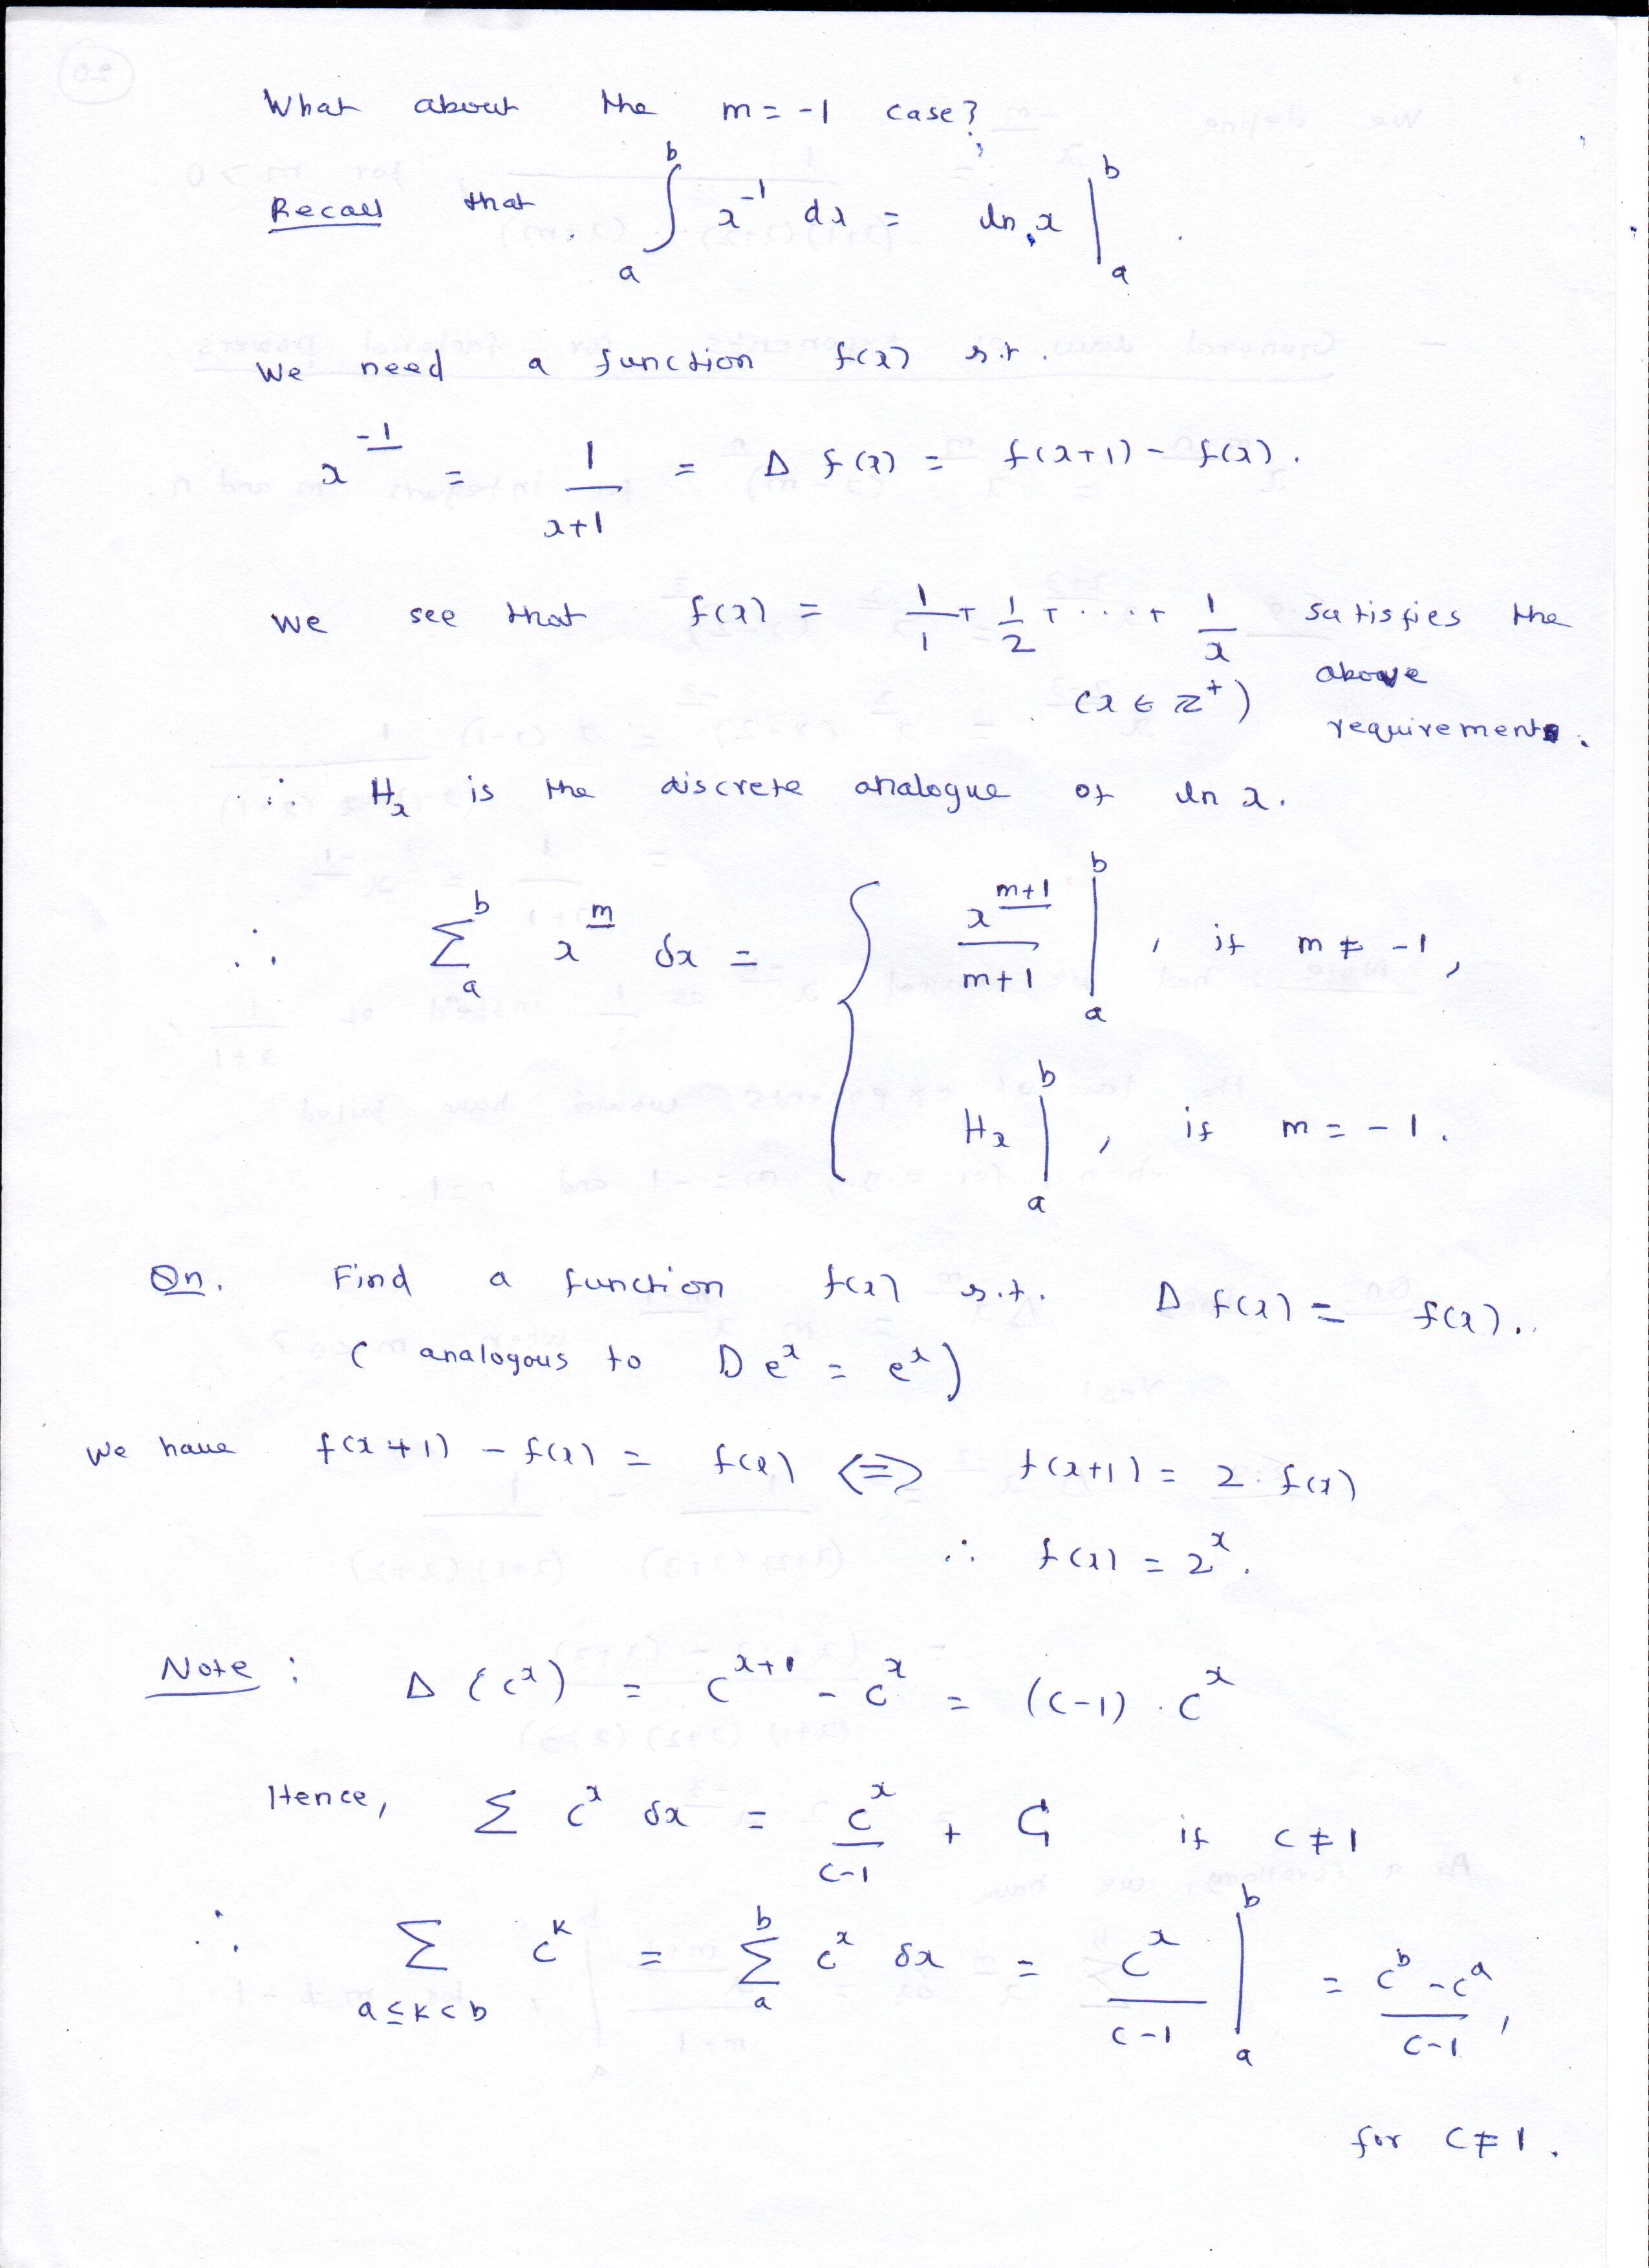 What about the m = -1 case?
Recall that ∫_a^b x^{-1} dx = ln x |_a^b .
We need a function f(x) s.t.
x^{\underline{-1}} = 1/(x+1) = Δ f(x) = f(x+1) - f(x).
We see that f(x) = 1/1 + 1/2 + ··· + 1/x satisfies the
(x ∈ ℤ^+) above
requirement.
∴ H_x is the discrete analogue of ln x.
∴ ∑_a^b x^{\underline{m}} δx = { x^{\underline{m+1}}/(m+1) |_a^b , if m ≠ -1,
H_x |_a^b , if m = -1.
Qn. Find a function f(x) s.t. Δ f(x) = f(x).
( analogous to D e^x = e^x )
We have f(x+1) - f(x) = f(x) ⟺ f(x+1) = 2 · f(x)
∴ f(x) = 2^x.
Note : Δ (c^x) = c^{x+1} - c^x = (c-1) · c^x
Hence, ∑ c^x δx = c^x/(c-1) + C_1 if c ≠ 1
∴ ∑_{a≤k<b} c^k = ∑_a^b c^x δx = c^x/(c-1) |_a^b = (c^b - c^a)/(c-1) ,
for c ≠ 1.